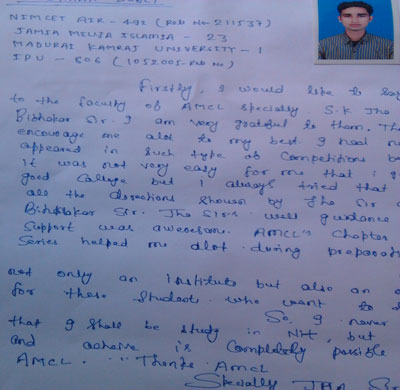 NIMCET AIR - 492 (Roll No 211537)
JAMIA MILLIA ISLAMIA - 23
MADURAI KAMRAJ UNIVERSITY - 1
IPU - 606 (1052005 - Roll No)
Firstly, I would like to say
to the faculty of AMCL specially S.K Jha
Sir. I am very grateful to them. The
encourage me alot to my best. I had
appeared in such type of Competitions
it was not very easy for me that I
good College but I always tried that
all the directions shown by Jha Sir
Sir. The Sir's well guidance
support was awesome. AMCL's Chapter
Series helped me alot during
not only an institute but also an
for those student who want to
So, I never
that I shall be study in NIT, but
and acheive is completely possible
AMCL. "Thanks AMCL
Specially JHA Sir